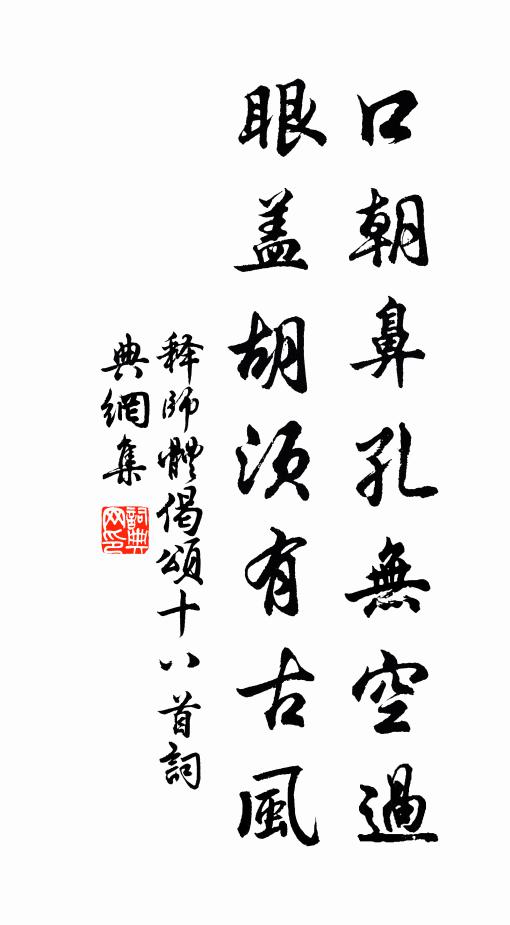 口朝鼻孔無空過
眼盖胡须有古風
释師體偈頌十八首詞
典網集
詞典網印